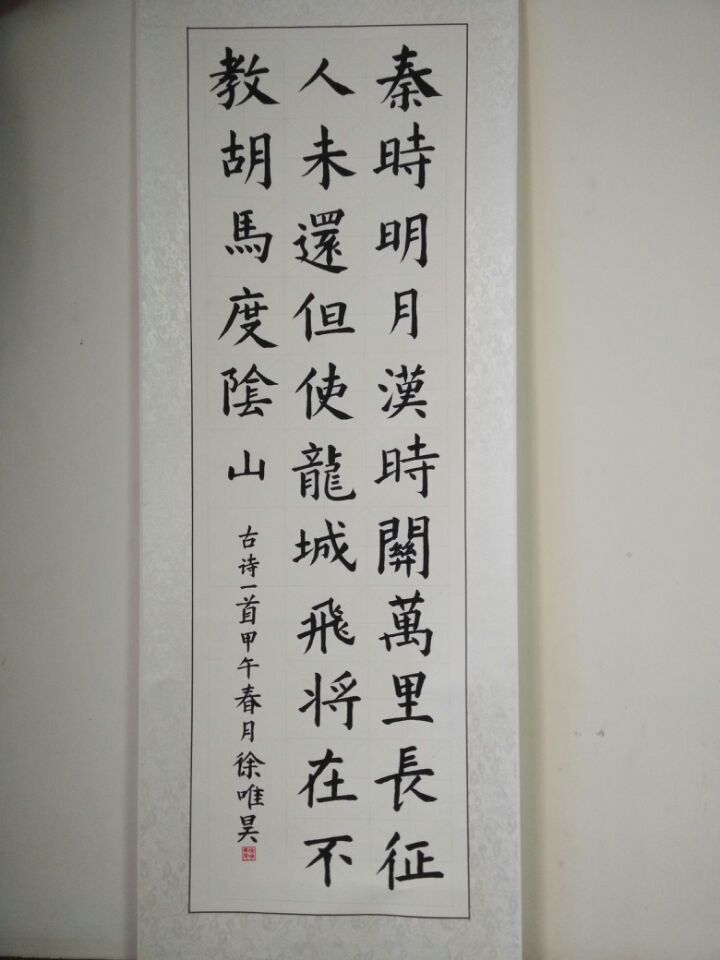 秦時明月漢時關萬里長征
人未還但使龍城飛将在不
教胡馬度陰山
古诗一首甲午春月徐唯昊